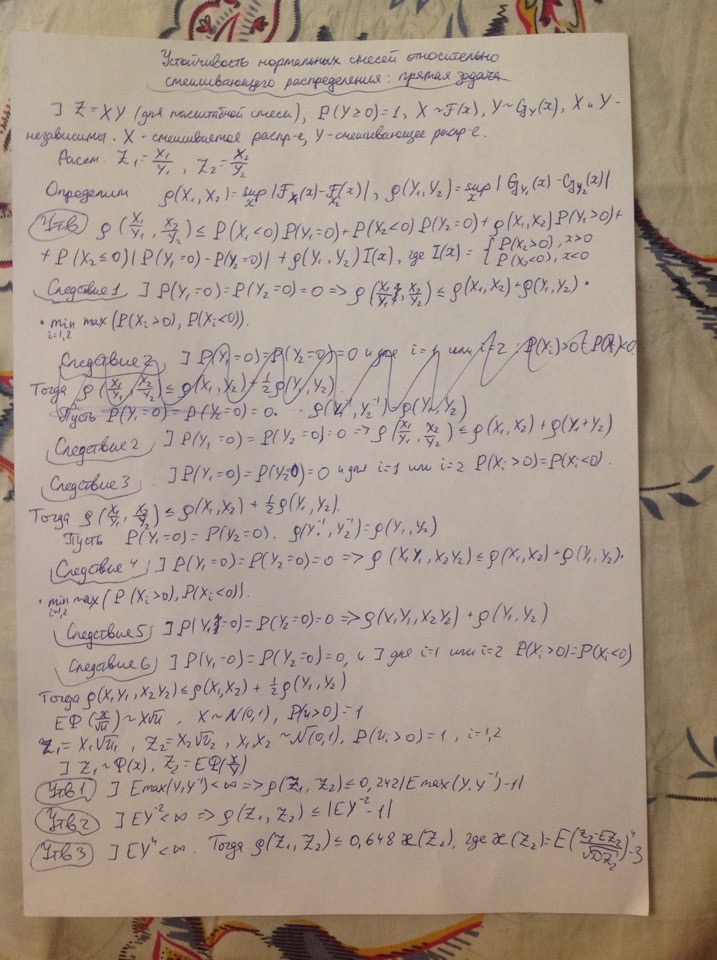 Устойчивость нормальных смесей относительно
смешивающего распределения: прямая задача.
] Z = XY (для масштабной смеси), P(Y≥0)=1, X~F(x), Y~G_Y(x), X и Y-
независимы. X - смешиваемое распр-е, Y-смешивающее распр-е.
Рассм. Z₁ = X₁/Y₁, Z₂ = X₂/Y₂
Определим ρ(X₁,X₂) = sup_x |F_X₁(x) - F_X₂(x)|, ρ(Y₁,Y₂) = sup_x |G_Y₁(x) - G_Y₂(x)|
Утв ρ(X₁/Y₁, X₂/Y₂) ≤ P(X₁<0)P(Y₁=0)+P(X₂<0)P(Y₂=0)+ρ(X₁,X₂)P(Y₁>0)+
+ P(X₂≤0)|P(Y₁=0)-P(Y₂=0)| + ρ(Y₁,Y₂)I(x), где I(x) = { P(X₂>0), x>0 P(X₂<0), x<0
Следствие 1 ] P(Y₁=0)=P(Y₂=0)=0 => ρ(X₁/Y₁, X₂/Y₂) ≤ ρ(X₁,X₂)+ρ(Y₁,Y₂) ·
· min_{i=1,2} max(P(Xᵢ>0), P(Xᵢ<0)).
Следствие 2 ] P(Y₁=0)=P(Y₂=0)=0 и для i=1 или i=2 : P(Xᵢ)>0 P(Xᵢ)<0
Тогда ρ(X₁/Y₁, X₂/Y₂) ≤ ρ(X₁,X₂)+½ρ(Y₁,Y₂)
Пусть P(Y₁=0) = P(Y₂=0)=0. ρ(Y₁⁻¹,Y₂⁻¹) ρ(Y₁,Y₂)
Следствие 2 ] P(Y₁=0)=P(Y₂=0)=0 => ρ(X₁/Y₁, X₂/Y₂) ≤ ρ(X₁,X₂)+ρ(Y₁+Y₂)
Следствие 3 : ] P(Y₁=0)=P(Y₂=0)=0 и для i=1 или i=2 P(Xᵢ>0)=P(Xᵢ<0).
Тогда ρ(X₁/Y₁, X₂/Y₂) ≤ ρ(X₁,X₂) + ½ρ(Y₁,Y₂).
Пусть P(Y₁=0)=P(Y₂=0). ρ(Y₁⁻¹,Y₂⁻¹)=ρ(Y₁,Y₂)
Следствие 4 ] P(Y₁=0)=P(Y₂=0)=0 => ρ(X₁Y₁,X₂Y₂) ≤ ρ(X₁,X₂)+ρ(Y₁,Y₂)·
· min_{i=1,2} max(P(Xᵢ>0), P(Xᵢ<0)).
Следствие 5 ] P(Y₁=0)=P(Y₂=0)=0 => ρ(X₁Y₁,X₂Y₂) + ρ(Y₁,Y₂)
Следствие 6 ] P(Y₁=0)=P(Y₂=0)=0, и ] для i=1 или i=2 P(Xᵢ>0)=P(Xᵢ<0)
Тогда ρ(X₁Y₁,X₂Y₂) ≤ ρ(X₁,X₂) + ½ρ(Y₁,Y₂)
EΦ(x/√u) ~ X√u, X~N(0,1), P(u>0)=1
Z₁ = X₁√u₁, Z₂ = X₂√u₂, X₁X₂ ~ N(0,1), P(uᵢ>0)=1, i=1,2
] Z₁~Φ(x), Z₂ = EΦ(x/Y)
Утв 1 ] Emax(Y,Y⁻¹)<∞ => ρ(Z₁,Z₂) ≤ 0,242|Emax(Y,Y⁻¹)-1|
Утв 2 ] EY⁻²<∞ => ρ(Z₁,Z₂) ≤ |EY⁻²-1|
Утв 3 ] EY⁴<∞. Тогда ρ(Z₁,Z₂) ≤ 0,648 æ(Z₂), где æ(Z₂) = E((Z₂-EZ₂)/√DZ₂)⁴-3